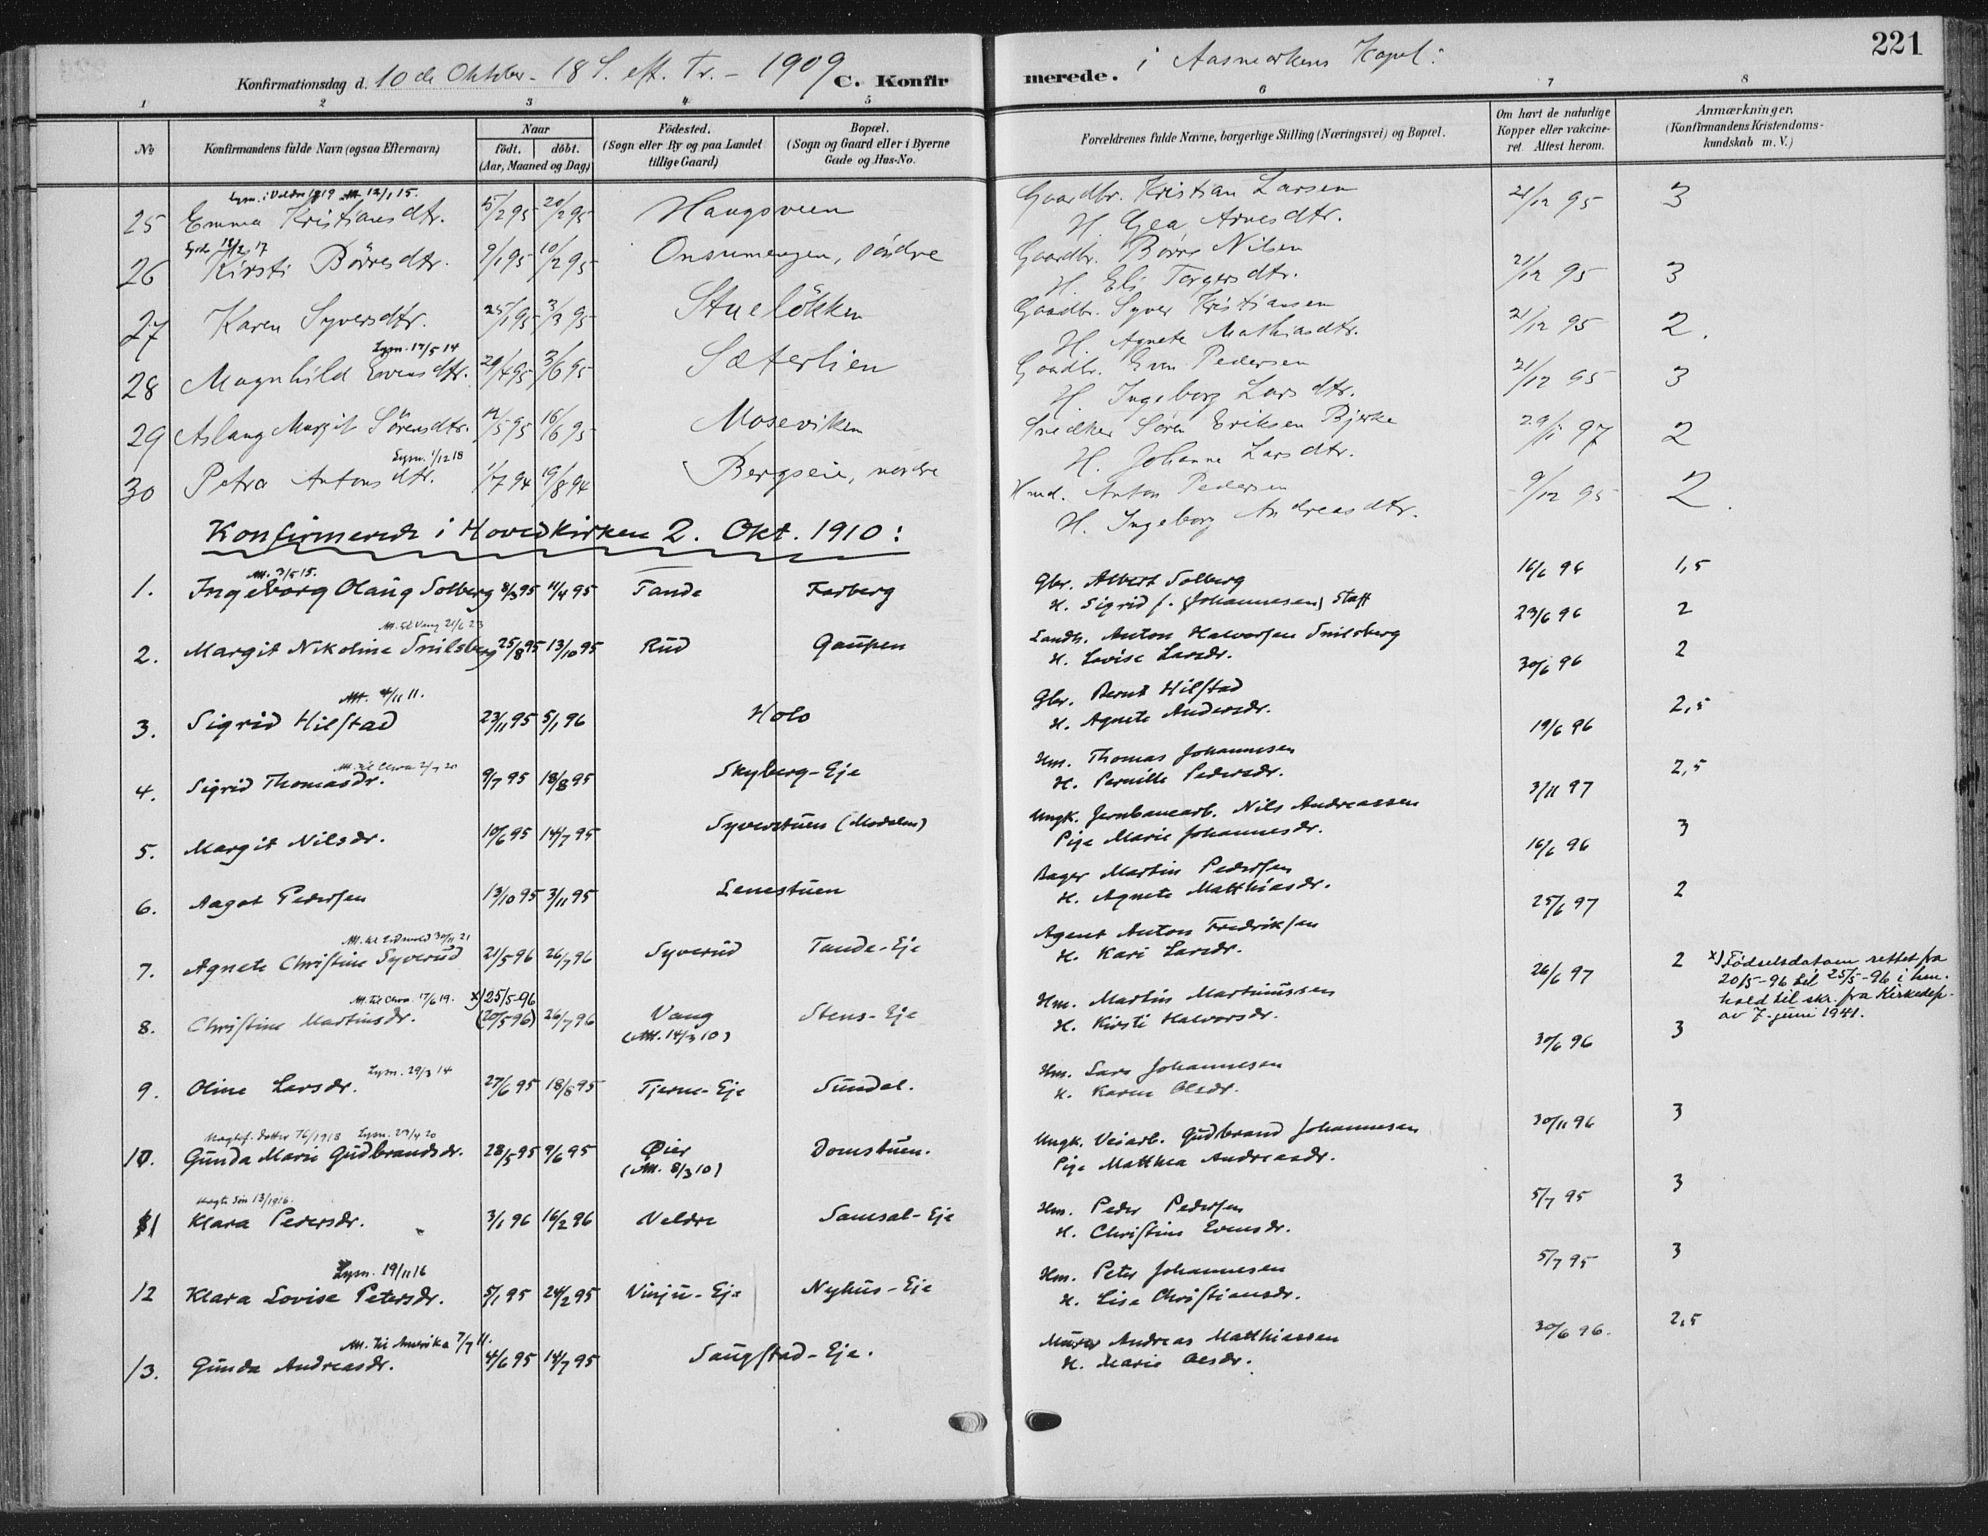 221
Konfirmationsdag d. 10de Oktober - 18 S. eft. Tr. - 1909 C. Konfirmerede. i Aasmarkens Kapel:
1 2 3 4 5 6 7 8
No
Konfirmandens fulde Navn (ogsaa Efternavn)
Naar
födt. döbt.
(Aar, Maaned og Dag)
Födested.
(Sogn eller By og paa Landet
tillige Gaard)
Bopæl.
(Sogn og Gaard eller i Byerne
Gade og Hus-No.
Forældrenes fulde Navne, borgerlige Stilling (Næringsvei) og Bopæl.
Om havt de naturlige
Kopper eller vakcine-
ret. Attest herom.
Anmærkninger.
(Konfirmandens Kristendoms-
kundskab m. V.)
Lysn. i Veldre 1919 Att. 12/1 15.
25 Emma Kristiansdtr. 15/2 95 20/2 95 Haugsveen Gaardbr. Kristian Larsen 21/12 95 3
H. Gea Arnesdtr.
26 Kirsti Börresdtr. 9/1 95 10/2 95 Onsumengen, söndre Gaardbr. Börre Nilsen 21/12 95 3
H. Eli Torgersdtr.
27 Karen Syversdtr. 25/1 95 3/3 95 Stuelökken Gaardbr. Syver Kristiansen 21/12 95 2.
H. Agnete Mathiasdtr.
Lysn. 17/5 14
28 Magnhild Evensdtr. 29/4 95 3/6 95 Sæterlien Gaardbr. Even Pedersen 21/12 95 3
H. Ingeborg Larsdtr.
29 Aslaug Margit Sörensdtr. 12/5 95 16/6 95 Moseviken Snedker Sören Eriksen Bjerke 29/1 97 2
H. Johanne Larsdtr.
Lysn. 1/12 18
30 Petra Antonsdtr. 1/7 94 19/8 94 Bergseie, nordre Hmd. Anton Pedersen 9/12 95 2.
H. Ingeborg Andreasdtr.
Konfirmerede i Hovedkirken 2. Okt. 1910:
Att. 3/5 15.
1. Ingeborg Olaug Solberg 8/3 95 4/4 95 Tande Farberg Gbr. Albert Solberg 16/6 96 1,5
H. Sigrid f. (Johannesen) Staff
Att. til Vang 21/6 23
2. Margit Nikoline Smilsberg 25/8 95 13/10 95 Rud Gaupen Landh. Anton Halvorsen Smilsberg 23/6 96 2
H. Lovise Larsdr.
Att. 4/11 11.
3. Sigrid Hilstad 23/11 95 5/1 96 Holo Gbr. Bernt Hilstad 30/6 96 2
H. Agnete Andersdr.
4. Sigrid Thomasdr. 9/7 95 18/8 95 Skyberg-Eje Hm. Thomas Johannesen 19/6 96 2,5
H. Pernille Pedersdr.
5. Margit Nilsdr. 10/6 95 14/7 95 Syverstuen (Modalen) Ungk. Jernbanearb. Nils Andreassen 3/11 97 2,5
Pige Marie Johannesdr.
6. Aagot Pedersen 13/10 95 3/11 95 Lenestuen Bager Martin Pedersen 16/6 96 3
H. Agnete Matthiasdr.
Att. til Eidsvold 30/11 21
7. Agnete Christine Syverud 21/5 96 26/7 96 Syverud Tande-Eje Agent Anton Fredriksen 25/6 97 2
H. Kari Larsdr.
Att. til Chra. 17/6 19. x) 25/5-96
8. Christine Martinsdr. (20/5 96) 26/7 96 Vang Stens-Eje Hm. Martin Martinussen 26/6 97 2
(Att. 14/3 10) H. Kirsti Halvorsdr.
x) Födselsdatoen rettet fra
20/5-96 til 25/5-96 i hen-
hold til skr. fra Kirkedep.
av 7. juni 1941.
Lysn. 29/3 14
9. Oline Larsdr. 27/6 95 18/8 95 Tjerne-Eje Sundal. Hm. Lars Johannesen 30/6 96 3
H. Karen Olsdr.
Lysn. 29/4 20
10. Gunda Marie Gudbrandsdr. 28/5 95 9/6 95 Øier Domstuen. Ungk. Veiarb. Gudbrand Johannesen 30/11 96 3
(Att. 8/3 10) Pige Matthea Andreasdr.
11 Klara Pedersdr. 3/1 96 16/2 96 Veldre Samsal-Eje Hm. Peder Pedersen 5/7 95 3
H. Christine Evensdr.
Lysn. 19/11 16
12 Klara Lovise Petersdr. 5/1 95 24/2 95 Vinju-Eje Nyhus-Eje Hm. Peter Johannesen 5/7 95 3
H. Lise Christiansdr.
Att. til Amerika 7/7 11.
13. Gunda Andreasdr. 4/6 95 14/7 95 Saugstad-Eje. Murer Andreas Matthiassen 30/6 96. 2,5
H. Marie Olsdr.